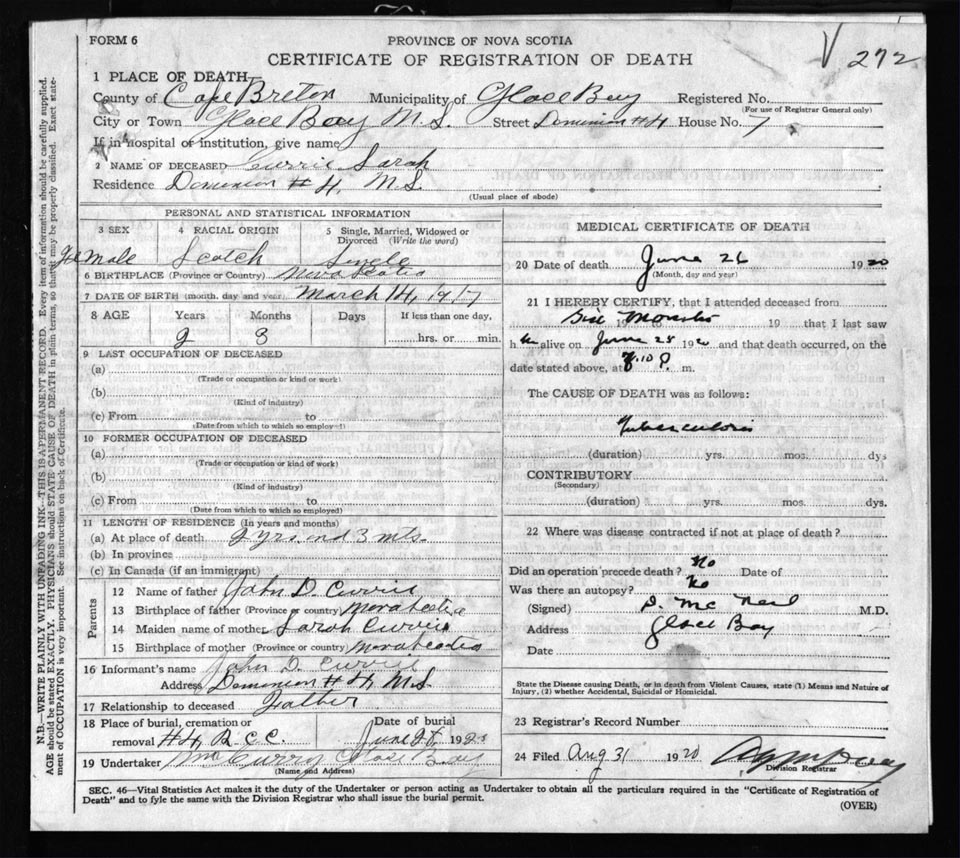 FORM 6
PROVINCE OF NOVA SCOTIA
CERTIFICATE OF REGISTRATION OF DEATH
272
1 PLACE OF DEATH—
County of Cape Breton Municipality of Glace Bay Registered No.
(For use of Registrar General only)
City or Town Glace Bay M.S. Street Dominion #4 House No. 7
If in hospital or institution, give name
2 NAME OF DECEASED Currie Sarah
Residence Dominion #4, M.S.
(Usual place of abode)
PERSONAL AND STATISTICAL INFORMATION
3 SEX 4 RACIAL ORIGIN 5 Single, Married, Widowed or Divorced (Write the word)
Female Scotch Single
6 BIRTHPLACE (Province or Country) Nova Scotia
7 DATE OF BIRTH (month, day and year) March 14, 1917
8 AGE Years Months Days If less than one day,
2 3 hrs. or min.
9 LAST OCCUPATION OF DECEASED
(a)
(Trade or occupation or kind or work)
(b)
(Kind of industry)
(c) From to
(Date from which to which so employed)
10 FORMER OCCUPATION OF DECEASED
(a)
(Trade or occupation or kind of work)
(b)
(Kind of industry)
(c) From to
(Date from which to which so employed)
11 LENGTH OF RESIDENCE (In years and months)
(a) At place of death 2 yrs. and 3 mts.
(b) In province
(c) In Canada (if an immigrant)
Parents
12 Name of father John D. Currie
13 Birthplace of father (Province or country) Nova Scotia
14 Maiden name of mother Sarah Currie
15 Birthplace of mother (Province or country) Nova Scotia
16 Informant's name John D. Currie
Address Dominion #4, M.S.
17 Relationship to deceased Father
18 Place of burial, cremation or removal #4 R.C.C. Date of burial June 28, 1920
19 Undertaker Wm Curry Glace Bay
(Name and Address)
MEDICAL CERTIFICATE OF DEATH
20 Date of death June 26 1920
(Month, day and year)
21 I HEREBY CERTIFY, that I attended deceased from
Six Months 19 that I last saw
h alive on June 25 1920 and that death occurred, on the
date stated above, at .10 P. m.
The CAUSE OF DEATH was as follows:
Tuberculosis
(duration) yrs. mos. dys
CONTRIBUTORY
(Secondary)
(duration) yrs. mos. dys.
22 Where was disease contracted if not at place of death?
Did an operation precede death? No Date of
Was there an autopsy? No
(Signed) McNeil M.D.
Address Glace Bay
Date
State the Disease causing Death, or in death from Violent Causes, state (1) Means and Nature of Injury, (2) whether Accidental, Suicidal or Homicidal.
23 Registrar's Record Number
24 Filed Aug 31 1920
Division Registrar
SEC. 46—Vital Statistics Act makes it the duty of the Undertaker or person acting as Undertaker to obtain all the particulars required in the "Certificate of Registration of
Death" and to fyle the same with the Division Registrar who shall issue the burial permit.
(OVER)
N.B.—WRITE PLAINLY WITH UNFADING INK—THIS IS A PERMANENT RECORD. Every item of information should be carefully supplied.
AGE should be stated EXACTLY. PHYSICIANS should STATE CAUSE OF DEATH in plain terms, so that it may be properly classified. Exact state-
ment of OCCUPATION is very important. See instructions on back of Certificate.